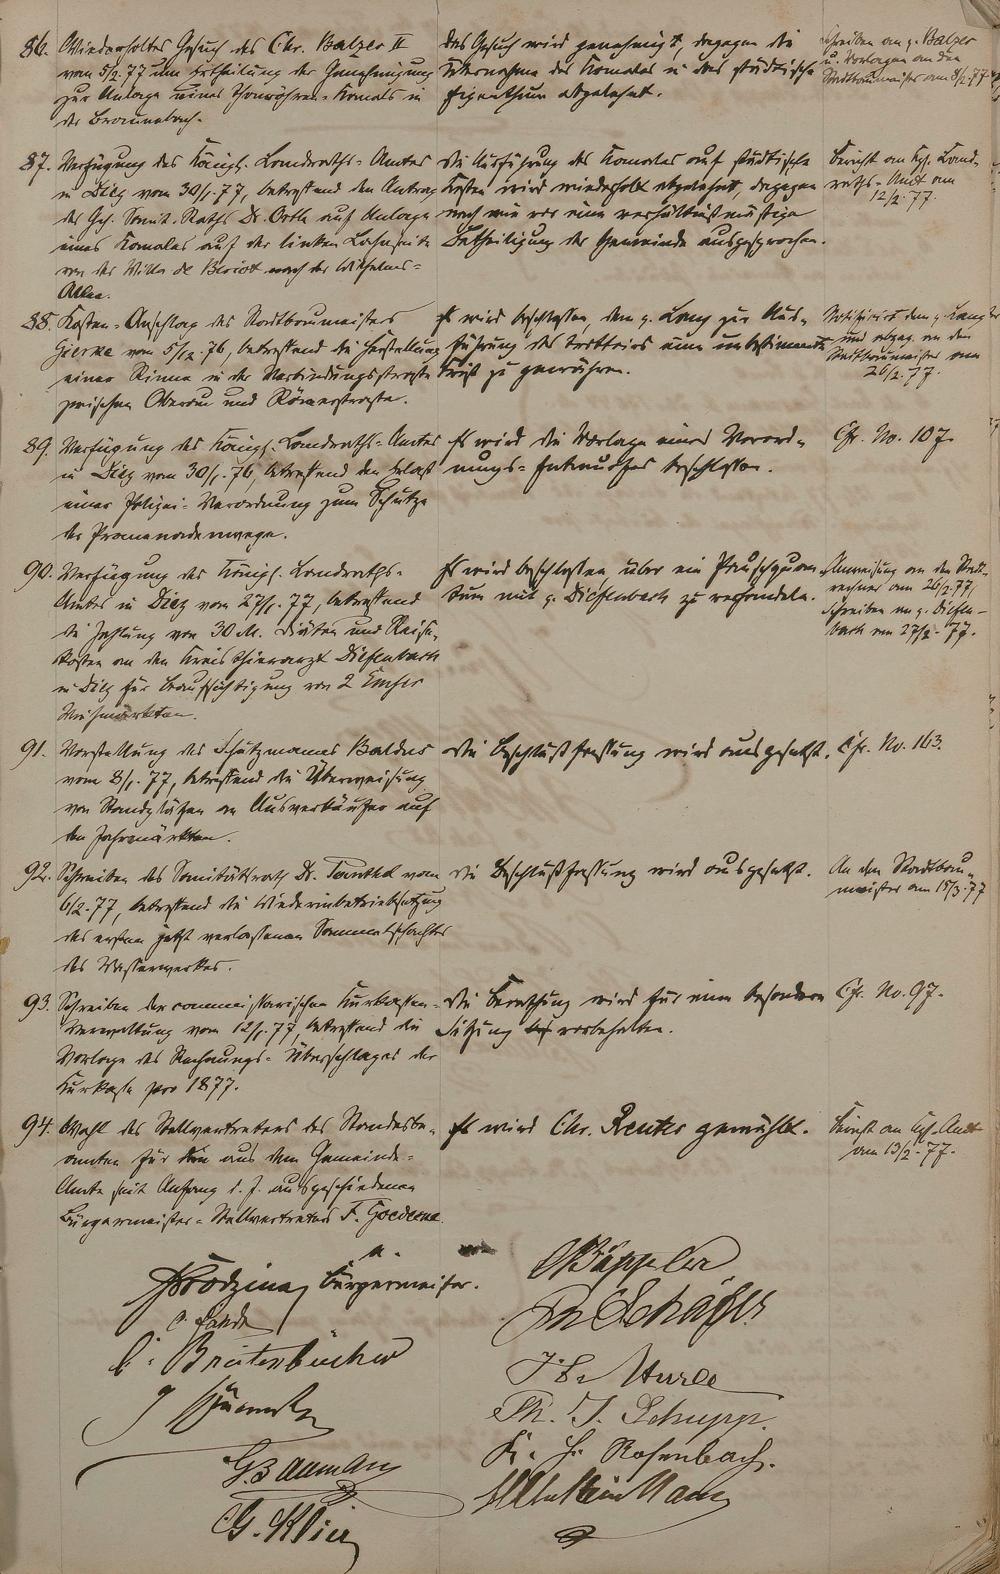 86. Wiederholtes Gesuch des Chr. Balzer II
vom 5/2. 77 um Ertheilung der Genehmigung
zur Anlage eines Thonröhren-Kanals in
der Braunebach.
Das Gesuch wird genehmigt, dagegen die
Übernahme des Kanales in das städtische
Eigenthum abgelehnt.
Schreiben an p. Balzer
u. Vorlagen an den
Stadtbaumeister am 8/2. 77
87. Verfügung des Königl. Landraths-Amtes
in Diez vom 30/1. 77, betreffend den Antrag
des Geh. Sanit. Raths Dr. Orth auf Anlage
eines Kanales auf der linken Lahnseite
von der Villa de Beriot nach der Wilhelms-
Allee.
Die Ausführung des Kanales auf städtische
Kosten wird wiederholt abgelehnt, dagegen
nach wie vor eine verhältnißmäßige
Betheiligung der Gemeinde ausgesprochen.
Bericht an Kgl. Land-
raths-Amt am
12/2. 77.
88. Kosten-Anschlag des Stadtbaumeisters
Gierke vom 5/12. 76, betreffend die Herstellung
einer Rinne in der Verbindungsstraße
zwischen Oberau und Römerstraße.
Es wird beschlossen, dem p. Lang zur Aus-
führung des Trottoirs eine unbestimmte
Frist zu gewähren.
Notificirt dem p. Lang
und abgeg. an den
Stadtbaumeister am
26/2. 77.
89. Verfügung des Königl. Landraths-Amtes
in Diez vom 30/1. 76, betreffend den Erlaß
einer Polizei-Verordnung zum Schutze
der Promenadenwege.
Es wird die Vorlage eines Verord-
nungs-Entwurfes beschlossen.
Cfr. No. 107.
90. Verfügung des Königl. Landraths-
Amtes in Diez vom 27/1. 77, betreffend
die Zahlung von 30 M. Diäten und Reise-
kosten an den Kreisthierarzt Diefenbach
in Diez für Beaufsichtigung von 2 Emser
Viehmärkten.
Es wird beschlossen, über ein Pauschquan-
tum mit p. Diefenbach zu verhandeln.
Anweisung an den Stadt-
rechner am 26/2. 77,
Schreiben an p. Diefen-
bach am 27/2. 77.
91. Vorstellung des Schutzmannes Baldus
vom 8/1. 77, betreffend die Überweisung
von Standplätzen an Ausverkäufer auf
den Jahrmärkten.
Die Beschlußfassung wird ausgesetzt.
Cfr. No. 163.
92. Schreiben des Sanitätsrath Dr. vom
6/2. 77, betreffend die Wiederinbetriebsetzung
des ersten jetzt verlassenen Sammelschachtes
des Wasserwerkes.
Die Beschlußfassung wird ausgesetzt.
An den Stadtbau-
meister am 15/3. 77
93. Schreiben der commissarischen Kurkassen-
Verwaltung vom 12/1. 77, betreffend die
Vorlage des Rechnungs-Überschlages der
Kurkasse pro 1877.
Die Berathung wird für eine besondere
Sitzung vorbehalten.
Cfr. No. 97.
94. Wahl des Stellvertreters des Standesbe-
amten für den aus dem Gemeinde-
Amte seit Anfang d. J. ausgeschiedenen
Bürgermeister-Stellvertreters F. Goedecke.
Es wird Chr. Reuter gewählt.
Bericht an Kgl. Amt
am 13/2. 77.
Bürgermeister.
C. Breitenbücher
G. Baumann
G. Klein
Th. J. Schupp.
Rosenbach.